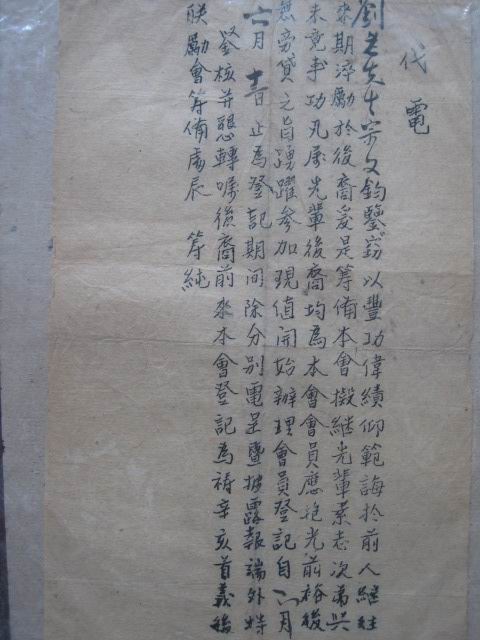 代電
劉老先生宗文鈞鑒竊以豐功偉績仰範誨於前人繼往
來期淬勵於後裔爰是籌備本會擬繼光輩素志次弟興
未竟事功凡屬光輩後裔均為本會會員應抱光前裕後
無旁貸之旨踴躍參加現值開始辦理會員登記自六月
六月十日止為登記期間除分別電呈暨披露報端外特
鑒核并懇轉囑後裔前來本會登記為禱辛亥首義後
联勵會籌備處辰 等純